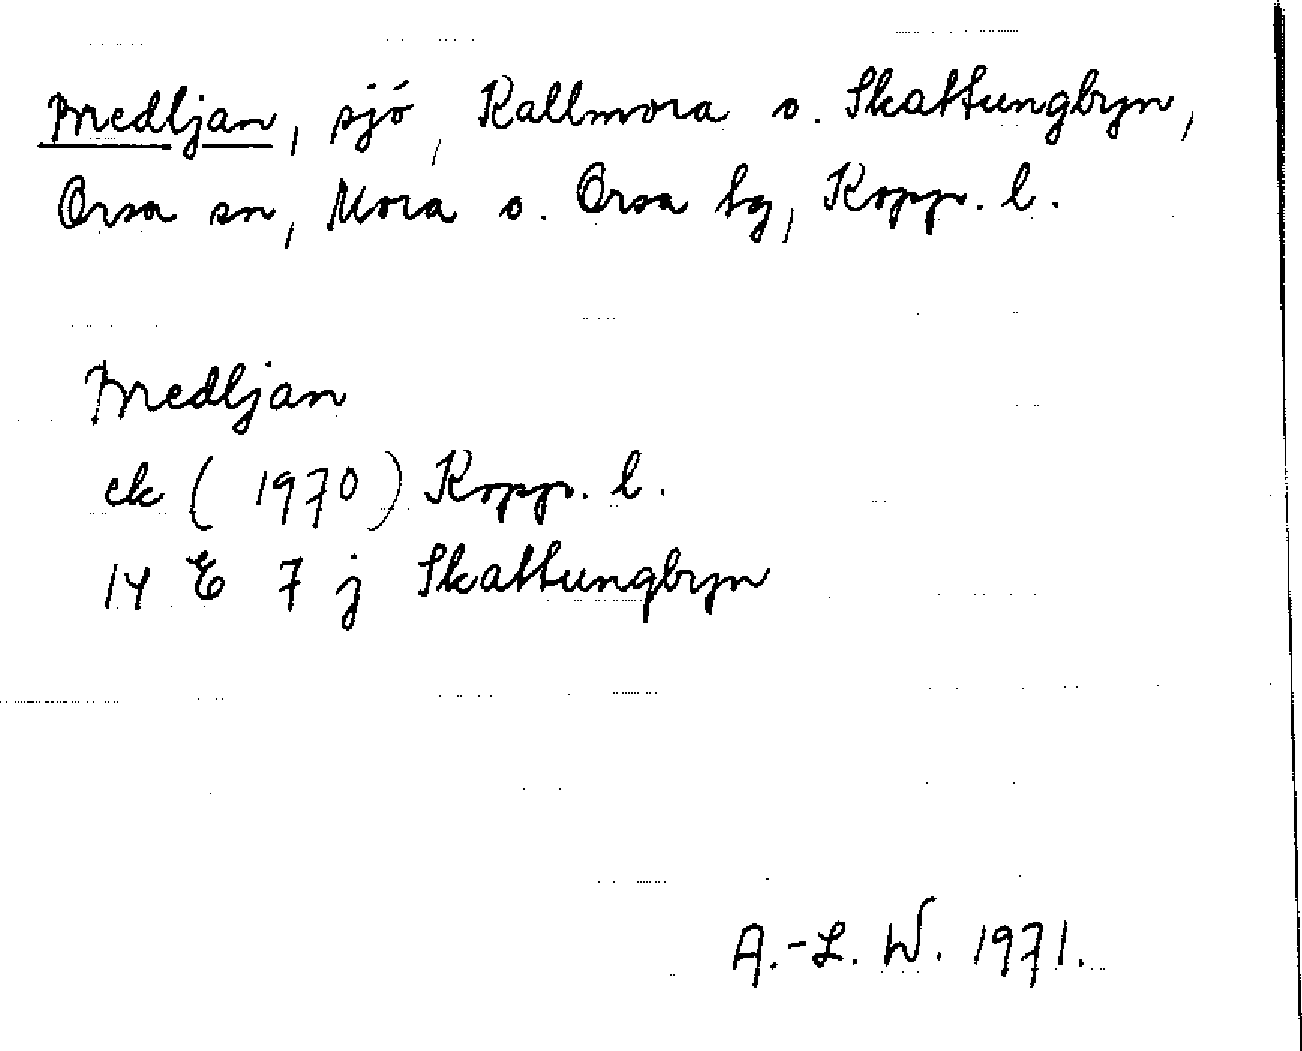 sjö, Kallmora o. Skattungbyn,
Orsa sn, Mora o. Orsa tg, Kopp. l.
ek (1970) Kopp. l.
14 E 7 j Skattungbyn
A.-L. W. 1971.